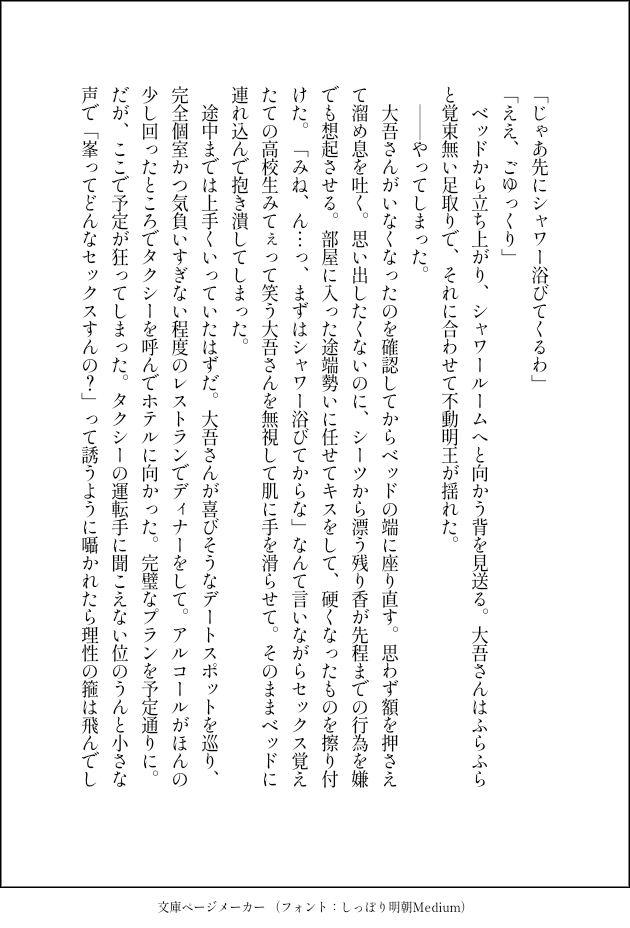 「じゃあ先にシャワー浴びてくるわ」
「ええ、ごゆっくり」
　ベッドから立ち上がり、シャワールームへと向かう背を見送る。大吾さんはふらふら
と覚束無い足取りで、それに合わせて不動明王が揺れた。
　――やってしまった。
　大吾さんがいなくなったのを確認してからベッドの端に座り直す。思わず額を押さえ
て溜め息を吐く。思い出したくないのに、シーツから漂う残り香が先程までの行為を嫌
でも想起させる。部屋に入った途端勢いに任せてキスをして、硬くなったものを擦り付
けた。「みね、ん…っ、まずはシャワー浴びてからな」なんて言いながらセックス覚え
たての高校生みてぇって笑う大吾さんを無視して肌に手を滑らせて。そのままベッドに
連れ込んで抱き潰してしまった。
　途中までは上手くいっていたはずだ。大吾さんが喜びそうなデートスポットを巡り、
完全個室かつ気負いすぎない程度のレストランでディナーをして。アルコールがほんの
少し回ったところでタクシーを呼んでホテルに向かった。完璧なプランを予定通りに。
だが、ここで予定が狂ってしまった。タクシーの運転手に聞こえない位のうんと小さな
声で「峯ってどんなセックスすんの？」って誘うように囁かれたら理性の箍は飛んでし
文庫ページメーカー （フォント：しっぽり明朝Medium）